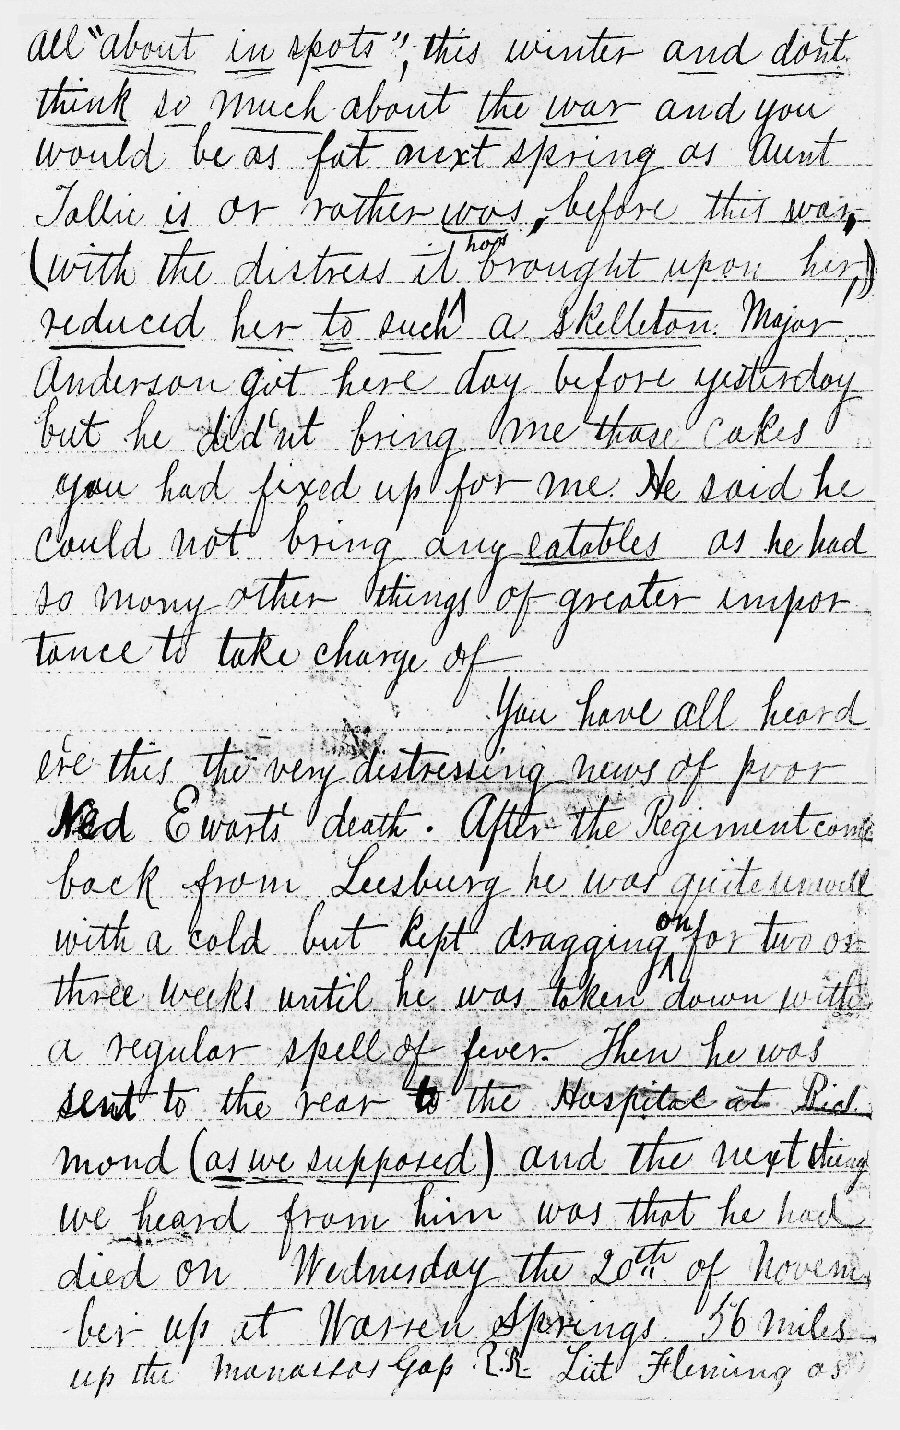 all "about in spots", this winter and don't
think so much about the war and you
would be as fat next spring as Aunt
Tallie is or rather was, before this war,
(with the distress it has brought upon her,)
reduced her to such a skelleton. Major
Anderson got here day before yesterday
but he did'nt bring me those cakes
you had fixed up for me. He said he
could not bring any eatables as he had
so many other things of greater impor
tance to take charge of
You have all heard
e're this the very distressing news of poor
Ned Ewart's death. After the Regiment came
back from Leesburg he was quite unwell
with a cold but kept dragging on for two or
three weeks until he was taken down with
a regular spell of fever. Then he was
sent to the rear to the Hospital at Rich
mond (as we supposed) and the next thing
we heard from him was that he had
died on Wednesday the 20th of Novem
ber up at Warren Springs 56 miles
up the Manassas Gap R.R Liut Fleming as